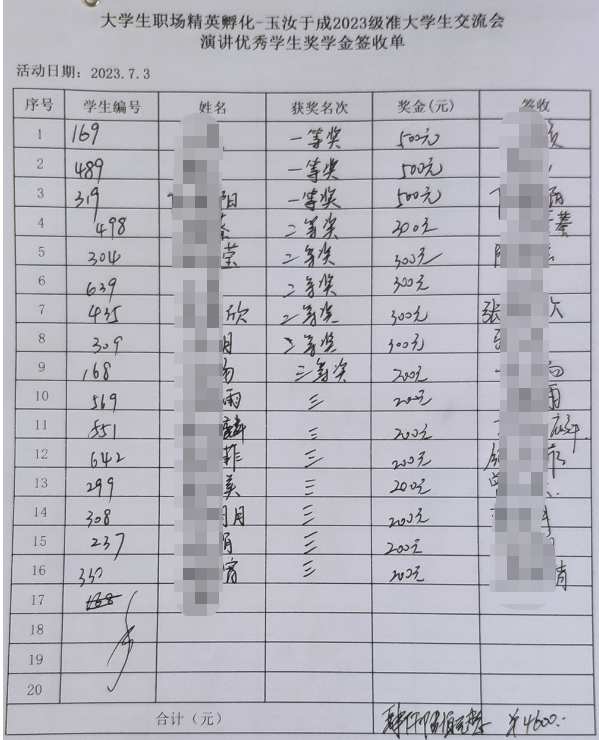 大学生职场精英孵化-玉汝于成2023级准大学生交流会
演讲优秀学生奖学金签收单
活动日期：2023.7.3
序号 学生编号 姓名 获奖名次 奖金(元) 签收
1 169 一等奖 500元
2 489 一等奖 500元
3 319 阳 一等奖 500元
4 498 二等奖 300元
5 304 莹 二等奖 300元
6 639 二等奖 300元
7 435 欣 二等奖 300元 张
8 309 二等奖 300元
9 168 三等奖 200元
10 569 雨 三 200元 雨
11 551 麟 三 200元
12 642 菲 三 200元
13 299 美 三 200元
14 308 明 三 200元
15 237 三 200元
16 330 三 200元
17 168
18
19
20
合计（元） ¥4600